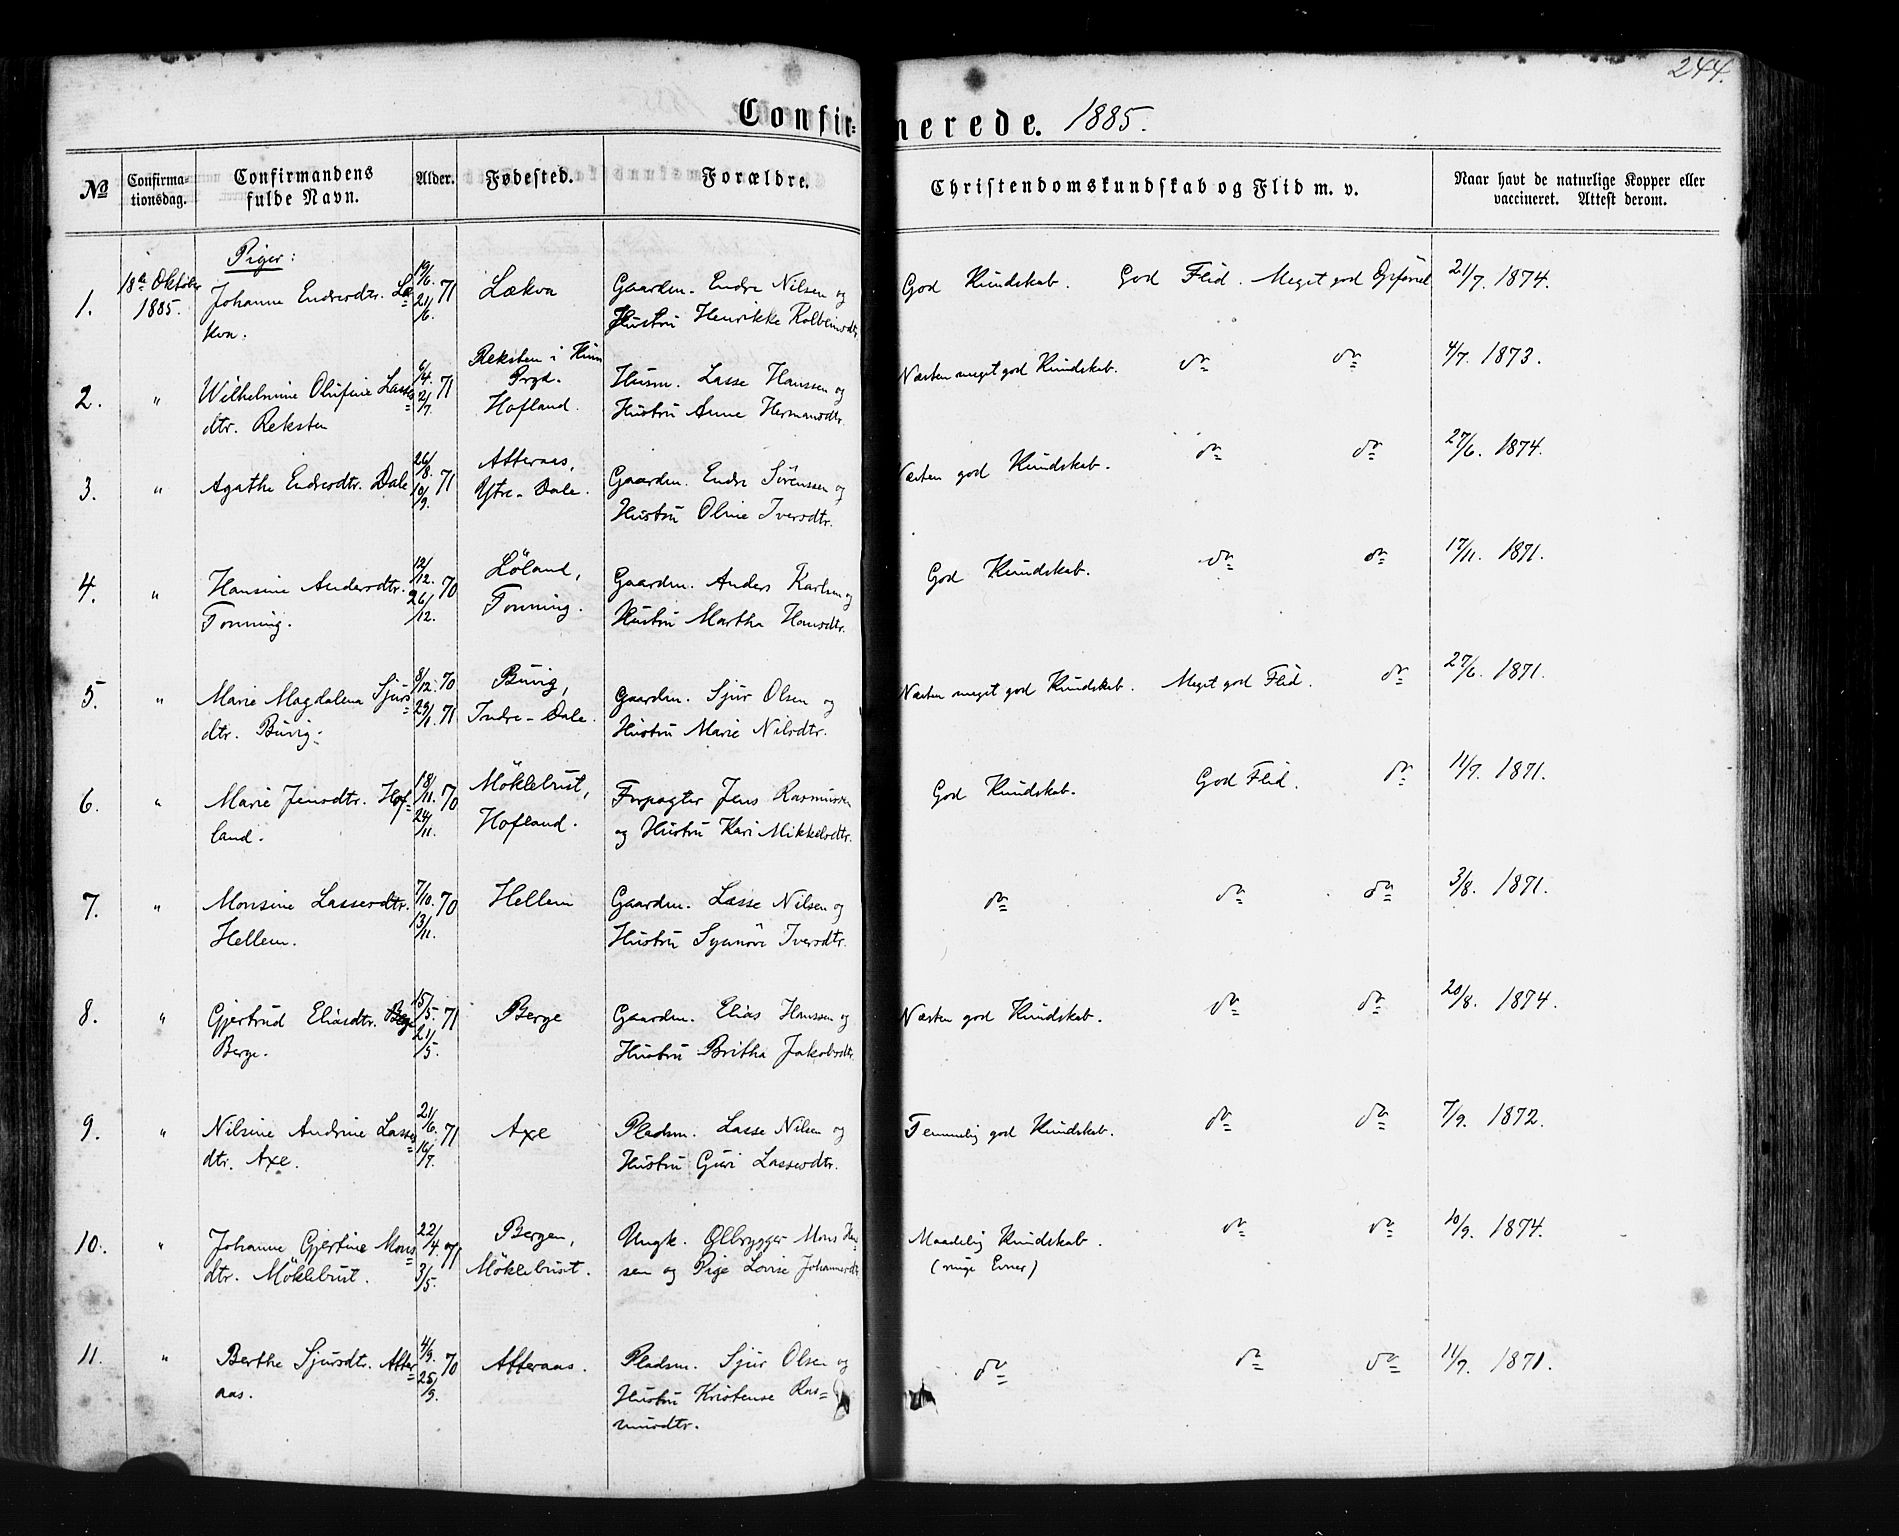 244.
Confir=merede. 1885.
No Confirma-tionsdag. Confirmandens fulde Navn. Alder. Fødested. Forældre. Christendomskundskab og Flid m. v. Naar havt de naturlige Kopper eller vaccineret. Attest derom.
Piger:
1. 18de Oktober 1885. Johanne Endresdtr. Læ=kva. 19/6. 21/6 71 Lækva Gaardm. Endre Nilsen og Hustru Henrikke Kolbeinsdtr. God Kundskab. God Flid. Meget god Opførsel 21/7. 1874.
2. " Wilhelmine Olufine Lasse=dtr. Reksten 6/4. 2/7. 71 Reksten i Kinn Prgd. Hofland. Husm. Lasse Hanssen og Hustru Anne Hermansdtr. Næsten meget god Kundskab. do do 4/7. 1873.
3. " Agathe Endresdtr. Dale 26/8. 10/9. 71 Atteraas, Ytre-Dale. Gaardm. Endre Sörenssen og Hustru Oline Iversdtr. Næsten god Kundskab. do do 27/6. 1874.
4. " Hansine Andersdtr. Tonning. 12/12. 26/12. 70 Löland, Tonning. Gaardm. Anders Karlsen og Hustru Martha Hansdtr. God Kundskab. do do 17/11. 1871.
5. " Marie Magdalena Sjurs=dtr. Buvig. 8/12. 70 29/1. 71 Buvig, Indre-Dale. Gaardm. Sjur Olsen og Hustru Marie Nilsdtr. Næsten meget god Kundskab. Meget god Flid. do 27/6. 1871.
6. " Marie Jensdtr. Hof=land. 18/11. 24/11. 70 Möklebust, Hofland. Forpagter Jens Rasmussen og Hustru Kari Mikkelsdtr. God Kundskab. God Flid. do 11/7. 1871.
7. " Monsine Lassesdtr. Hellem. 7/10. 13/11. 70 Hellem Gaardm. Lasse Nilsen og Hustru Synnöve Iversdtr. do do do 3/8. 1871.
8. " Gjertrud Eliasdtr. Berge. 15/5. 21/5. 71 Berge Gaardm. Elias Hanssen og Hustru Britha Jakobsdtr. Næsten god Kundskab. do do 20/8. 1874.
9. " Nilsine Andrine Lasse=dtr. Axe. 21/6. 16/7. 71 Axe Pladsm. Lasse Nilsen og Hustru Guri Lassesdtr. Temmelig god Kundskab. do do 7/9. 1872.
10. " Johanne Gjertine Mons=dtr. Möklebust. 22/4. 3/5. 71 Bergen, Möklebust. Ungk. Ølbrygger Mons Han=sen og Pige Lovise Johannesdtr. Maadelig Kundskab. (ringe Evner) do do 10/9. 1874.
11. " Berthe Sjursdtr. Atter=aas. 4/9. 25/9. 70 Atteraas. Pladsm. Sjur Olsen og Hustru Kristense Ras=musdtr. do do do 11/7. 1871.